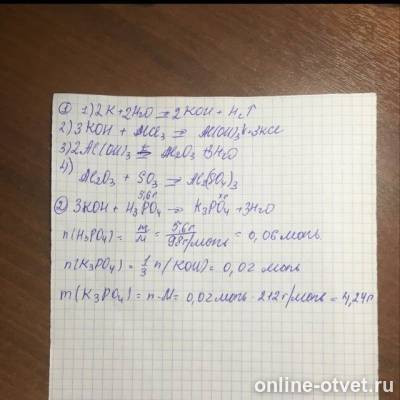 ① 1) 2K + 2H₂O → 2KOH + H₂↑
2) 3KOH + AlCl₃ → Al(OH)₃↓ + 3KCl
3) 2Al(OH)₃ → Al₂O₃ + 3H₂O
4)
Al₂O₃ + SO₃ → Al₂(SO₄)₃
5,6г xг
② 3KOH + H₃PO₄ → K₃PO₄ + 3H₂O
n(H₃PO₄) = m/M = 5,6г/98г/моль = 0,06 моль
n(K₃PO₄) = 1/3 n(KOH) = 0,02 моль
m(K₃PO₄) = n·M = 0,02 моль · 212 г/моль = 4,24г
online-otvet.ru